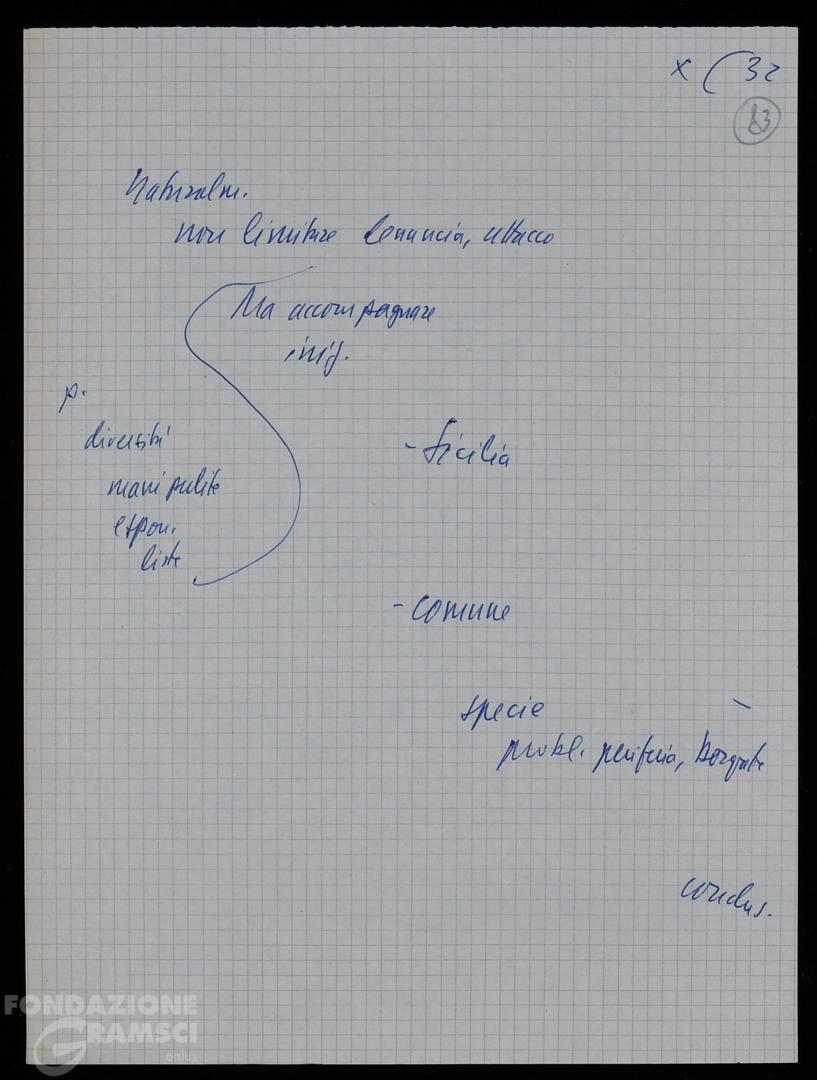 x ( 32
83
Naturalm.
non limitare denuncia, attacco
Ma accompagnare
iniz.
p.
diversità
mani pulite
espon.
liste
- Sicilia
- Comune
specie
probl. periferia, borgate
conclus.
FONDAZIONE
GRAMSCI
onlus